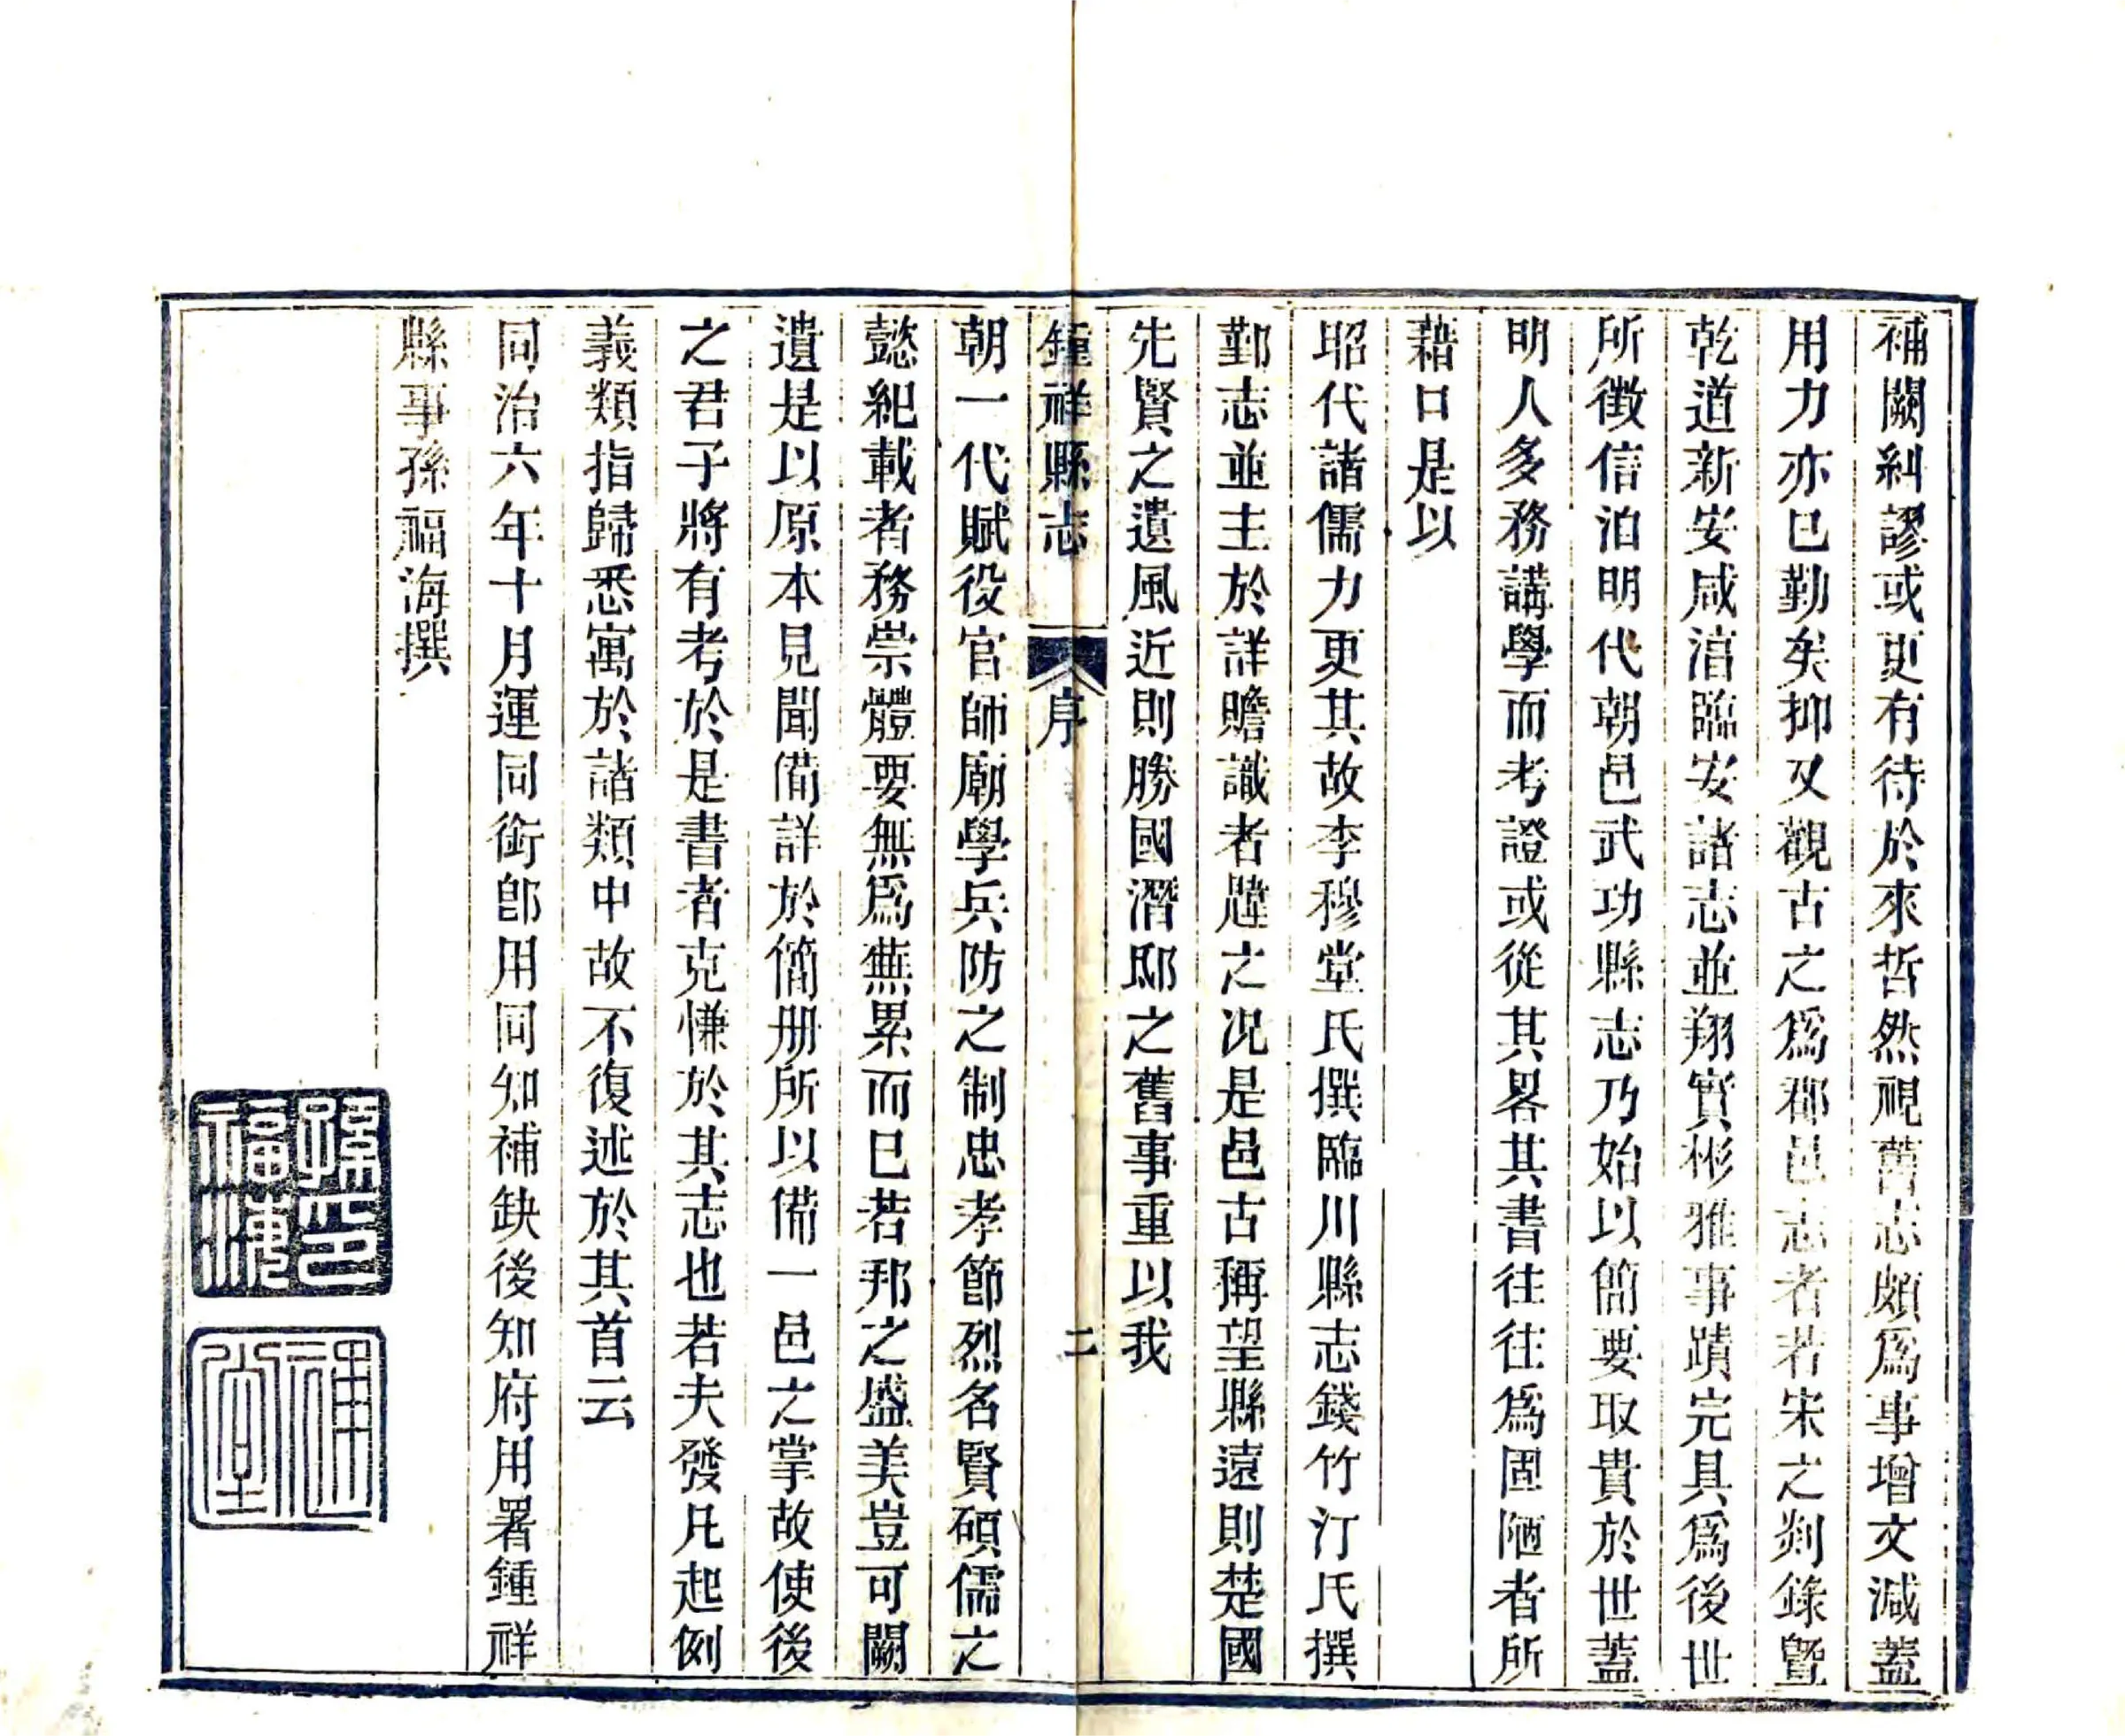 補闕糾謬或更有待於來哲然視舊志頗爲事增文減蓋
用力亦已勤矣抑又觀古之爲郡邑志者若宋之剡錄曁
乾道新安咸淳臨安諸志並翔實彬雅事蹟完具爲後世
所徵信洎明代朝邑武功縣志乃始以簡要取貴於世蓋
明人多務講學而考證或從其畧其書往往爲固陋者所
藉口是以
昭代諸儒力更其故李穆堂氏撰臨川縣志錢竹汀氏撰
鄞志並主於詳贍識者韙之况是邑古稱望縣遠則楚國
先賢之遺風近則勝國潛邸之舊事重以我
鍾祥縣志
序
二
朝一代賦役官師廟學兵防之制忠孝節烈名賢碩儒之
懿紀載者務崇體要無爲蕪累而已若邦之盛美豈可闕
遺是以原本見聞備詳於簡册所以備一邑之掌故使後
之君子將有考於是書者克慊於其志也若夫發凡起例
義類指歸悉寓於諸類中故不復述於其首云
同治六年十月運同銜卽用同知補缺後知府用署鍾祥
縣事孫福海撰
孫福海印